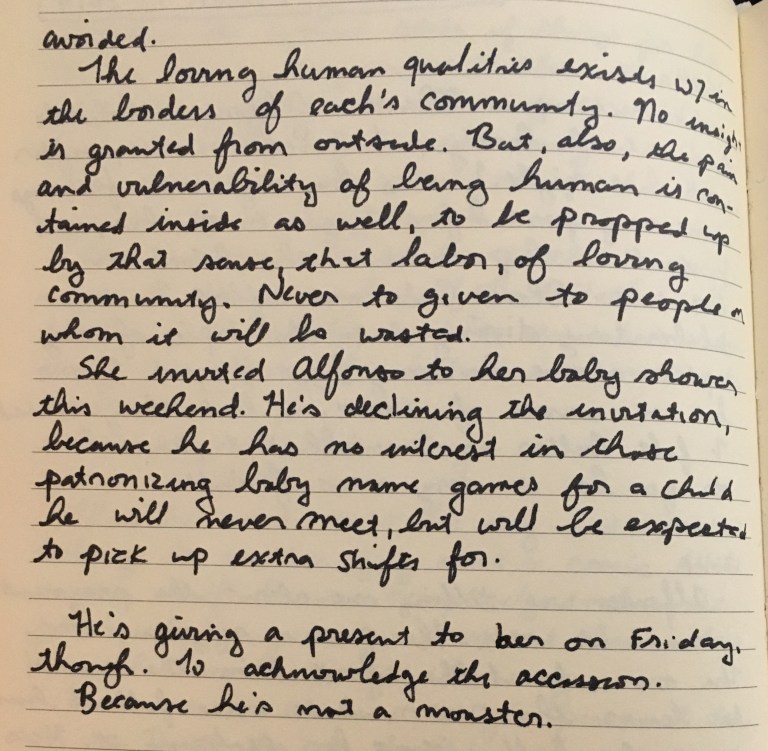 avoided.
The loving human qualities exists w/in
the borders of each's community. No insight
is granted from outside. But, also, the pain
and vulnerability of being human is con-
tained inside as well, to be propped up
by that sense, that labor, of loving
community. Never to given to people on
whom it will be wasted.
She invited Alfonso to her baby shower
this weekend. He's declining the invitation,
because he has no interest in those
patronizing baby name games for a child
he will never meet, but will be expected
to pick up extra shifts for.
He's giving a present to her on Friday,
though. To acknowledge the
Because he's not a monster.